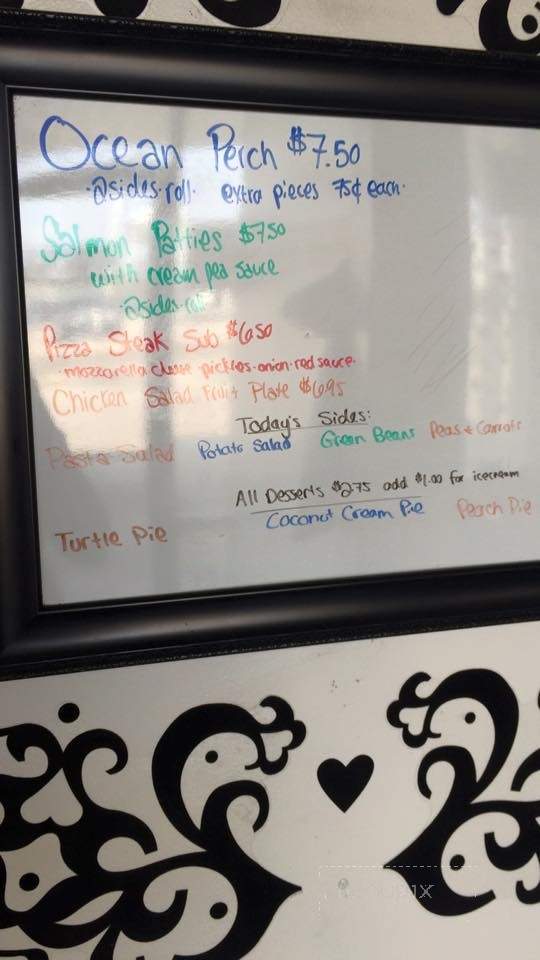 Ocean Perch $7.50
·2sides·roll· extra pieces 75¢ each·
Salmon Patties $750
with cream pea sauce
·2sides·roll
Pizza Steak Sub $650
·mozzarella cheese pickles·onion·red sauce·
Chicken Salad Fruit Plate $695
Today's Sides:
Pasta Salad Potato Salad Green Beans Peas & Carrots
All Desserts $275 add $1.00 for icecream
Turtle Pie Coconut Cream Pie Peach Pie